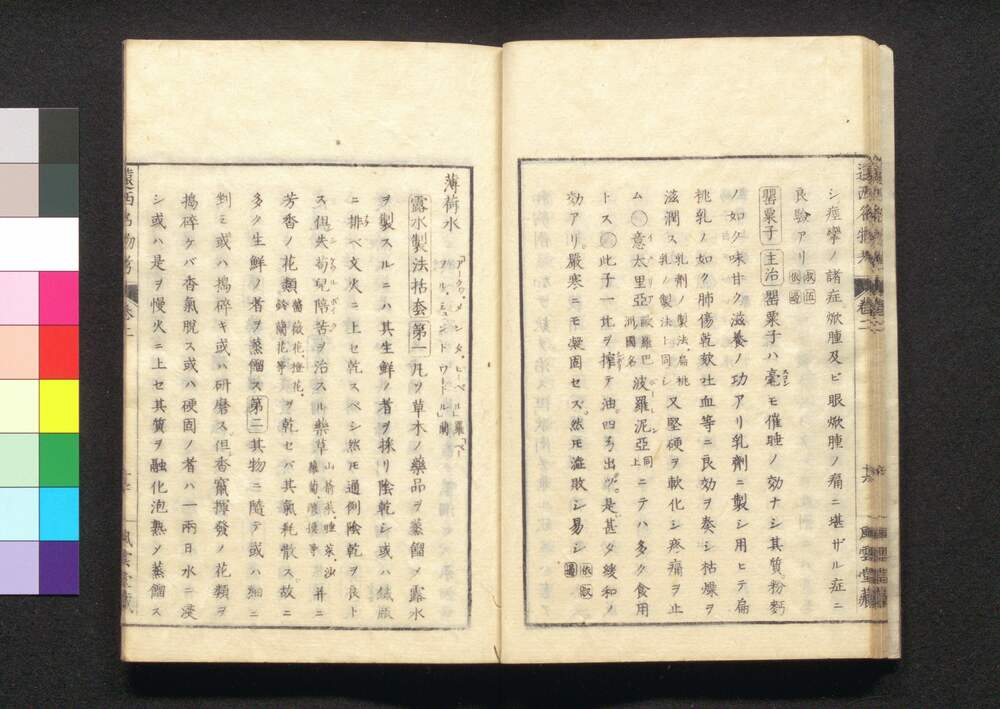 シ痙攣ノ諸症焮腫及ビ眼焮腫ノ痛ニ堪ザル症ニ
良驗アリ
罌粟子 主治 罌粟子ハ毫モ催睡ノ効ナシ其質粉麪
ノ如ク味甘ク滋養ノ功アリ乳劑ニ製シ用ヒテ扁
桃乳ノ如ク肺傷乾欬吐血等ニ良効ヲ奏シ枯燥ヲ
滋潤ス 乳劑ノ製法扁桃乳ノ製法ト同シ 又堅硬ヲ軟化シ疼痛ヲ止
ム○意太里亞 歐羅巴洲國名 波羅泥亞 同上 ニテハ多ク食用
トス○此子一 ヲ搾テ油 四 出ヅ是甚タ緩和ノ
効アリ嚴寒ニモ凝固セズ然モ 敗シ易シ
薄荷水 「アークワ、メンタ、ピーペル」羅「ペーパルミュントワートル」蘭
露水製法括套 第一 凡ソ草木ノ藥品ヲ蒸餾メ露水
ヲ製スルニハ其生鮮ノ者ヲ採リ陰乾シ或ハ紙版
ニ排ベ文火ニ上セ乾スベシ然モ通例陰乾ヲ良ト
ス但失苟兒陪苦ヲ治スル藥草 并ニ
芳香ノ花類 薔薇花、橙花、鈴蘭花等 ヲ乾セバ其氣耗散ス故ニ
多ク生鮮ノ者ヲ蒸餾ス 第二 其物ニ隨テ或ハ細ニ
剉ミ或ハ搗碎キ或ハ研磨ス但香竄揮發ノ花類ヲ
搗碎ケバ香氣脱ス或ハ硬固ノ者ハ一兩日水ニ浸
シ或ハ是ヲ慢火ニ上セ其質ヲ融化泡熟メ蒸餾ス
遠西名物考 卷二
風雲堂藏